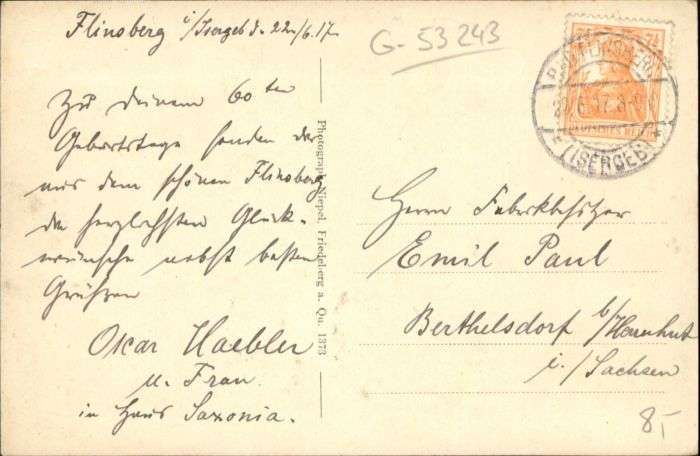 Flinsberg i/Isergeb d. 22/6.17
G-53243
Zu deinem 60ten
Geburtstage senden dir
aus dem schönen Flinsberg
die herzlichsten Glück-
wünsche nebst besten
Grüßen
Oskar Haebler
u. Frau
in Haus Saxonia.
Photograph Niepel, Friedeberg a. Qu. 1373
BAD FLINSBERG
22.6.17.8-9
(ISERGEB.)
7½
DEUTSCHES REICH
Herrn Fabrikbesitzer
Emil Paul
Berthelsdorf b/Herrnhut
i./Sachsen
8,-